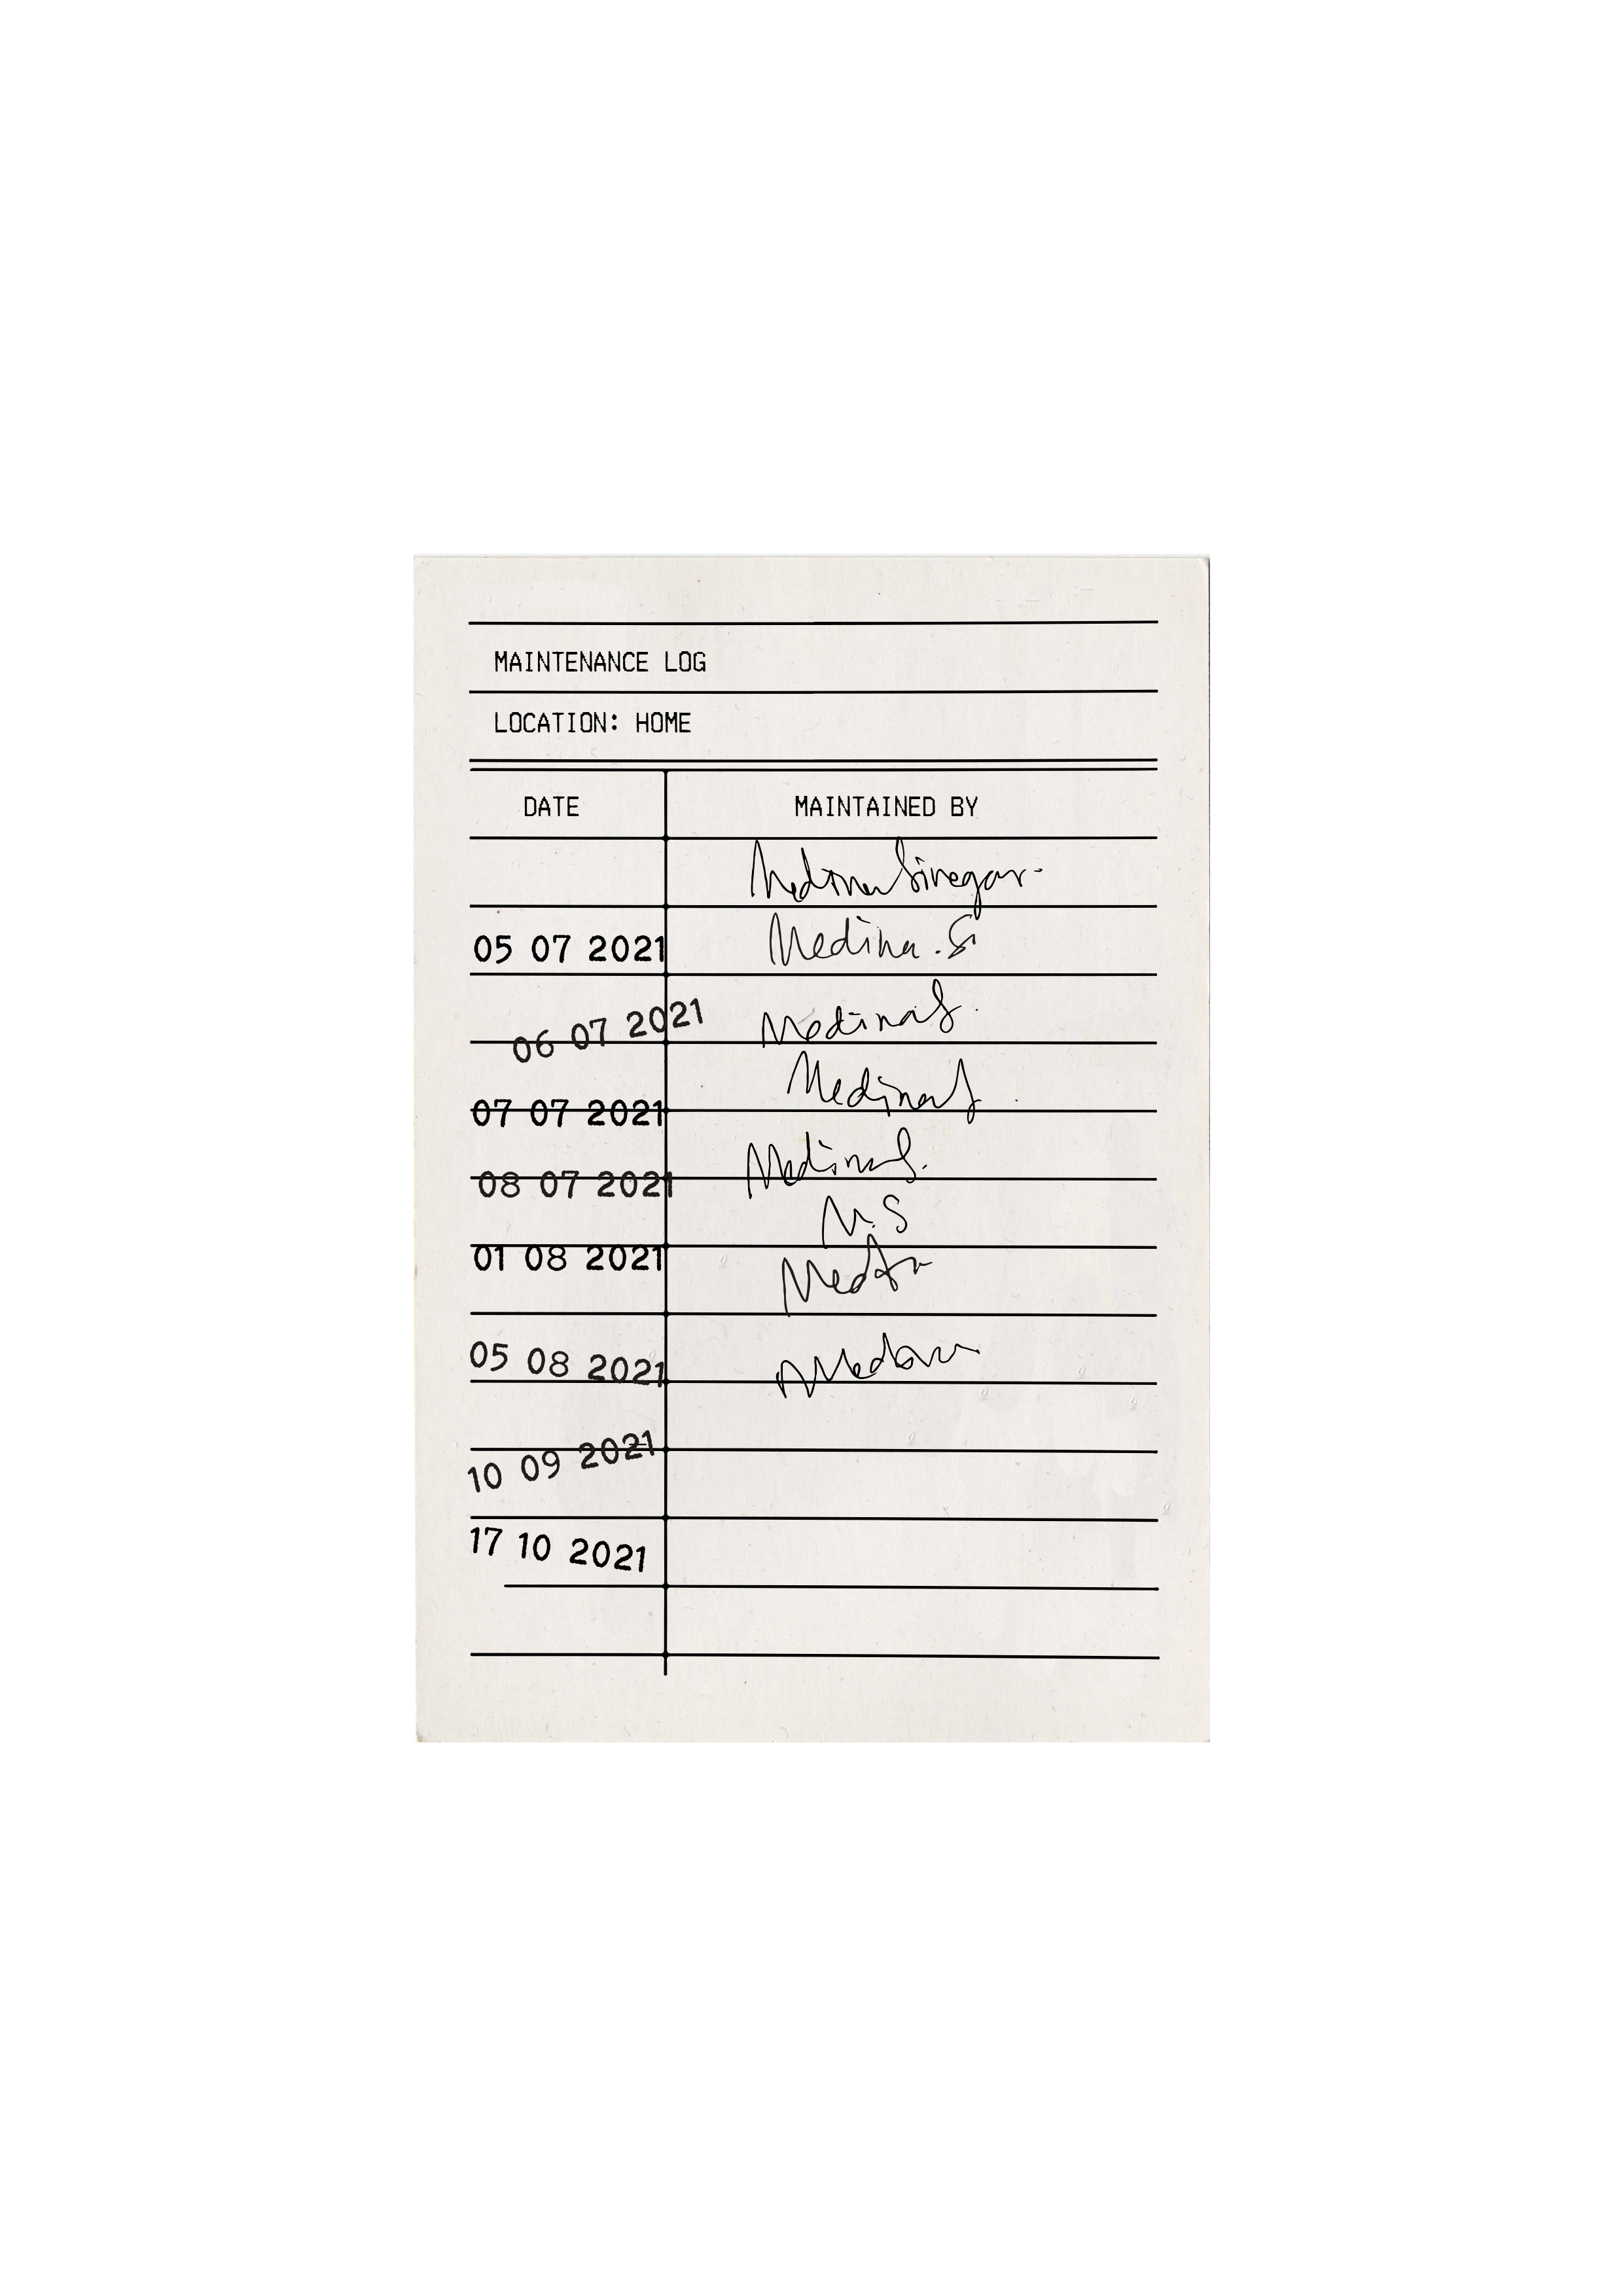 MAINTENANCE LOG
LOCATION: HOME
DATE MAINTAINED BY
Medina Siregar.
05 07 2021 Medina. S
06 07 2021 Medina S.
07 07 2021 Medina S.
08 07 2021 Medina S.
M.S
01 08 2021
05 08 2021
10 09 2021
17 10 2021